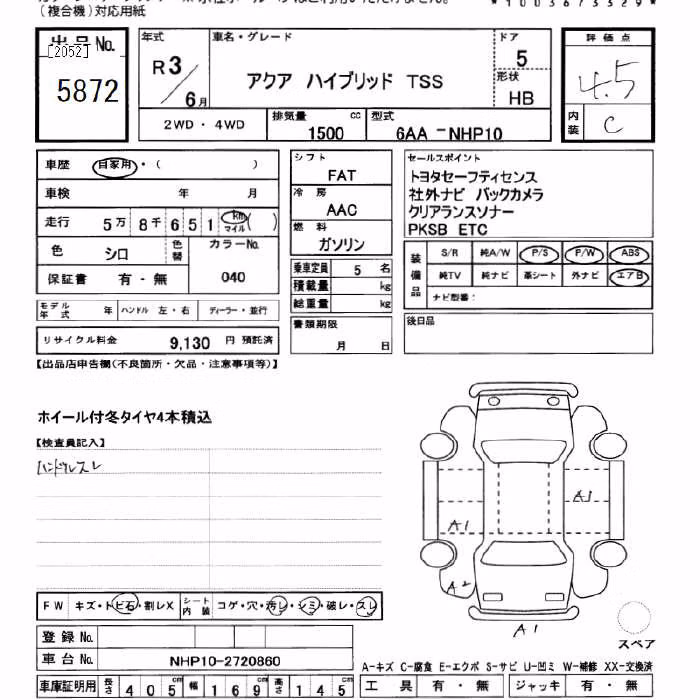 (複合機)対応用紙
*1003673529*
出品No.
[2052]
5872
年式
R3/6月
車名・グレード
アクア ハイブリッド TSS
ドア
5
形状
HB
評価点
4.5
内装
C
2WD・4WD
排気量 cc
1500
型式
6AA-NHP10
車歴 自家用・( )
車検 年 月
走行 5万8千651 km マイル ( )
色 シロ 色替 カラーNo.
040
保証書 有・無
モデル年式 年 ハンドル 左・右 ディーラー・並行
リサイクル料金 9,130 円 預託済
シフト
FAT
冷房
AAC
燃料
ガソリン
乗車定員 5 名
積載量 kg
総重量 kg
書類期限
月 日
セールスポイント
トヨタセーフティセンス
社外ナビ バックカメラ
クリアランスソナー
PKSB ETC
装備品
S/R 純A/W P/S P/W ABS
純TV 純ナビ 革シート 外ナビ エアB
ナビ型番:
後日品
【出品店申告欄(不良箇所・欠品・注意事項等)】
ホイール付冬タイヤ4本積込
【検査員記入】
ハンドルスレ
FW キズ・トビ石・割レX
シート内装 コゲ・穴・汚レ・シミ・破レ・スレ
登録No.
車台No. NHP10-2720860
車庫証明用 長さ 405cm 幅 169cm 高さ 145cm
A1
A1
A2
A1
スペア
A-キズ C-腐食 E-エクボ S-サビ U-凹ミ W-補修 XX-交換済
工具 有・無 ジャッキ 有・無